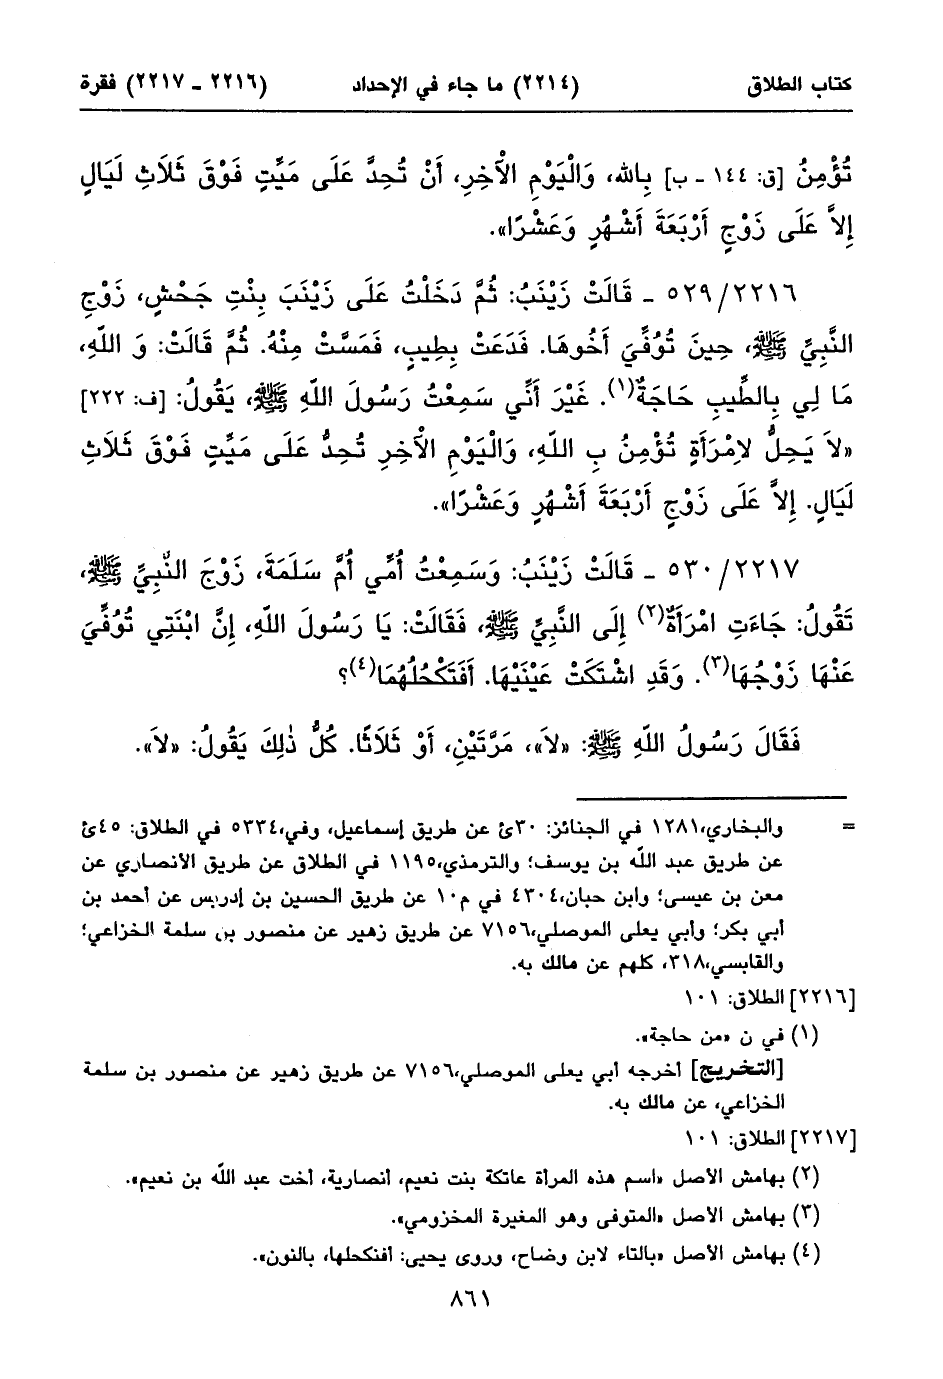 كتاب الطلاق (٢٢١٤) ما جاء في الإحداد (٢٢١٦ - ٢٢١٧) فقرة
تُؤْمِنُ [ق: ١٤٤ - ب] بِالله، وَالْيَوْمِ الْآخِرِ، أَنْ تُحِدَّ عَلَى مَيِّتٍ فَوْقَ ثَلَاثِ لَيَالٍ
إِلاَّ عَلَى زَوْجٍ أَرْبَعَةَ أَشْهُرٍ وَعَشْرًا».
٥٢٩/٢٢١٦ - قَالَتْ زَيْنَبُ: ثُمَّ دَخَلْتُ عَلَى زَيْنَبَ بِنْتِ جَحْشٍ، زَوْجِ
النَّبِيِّ ﷺ، حِينَ تُوُفِّيَ أَخُوهَا. فَدَعَتْ بِطِيبٍ، فَمَسَّتْ مِنْهُ. ثُمَّ قَالَتْ: وَ اللَّهِ،
مَا لِي بِالطِّيبِ حَاجَةٌ(١). غَيْرَ أَنِّي سَمِعْتُ رَسُولَ اللَّهِ ﷺ، يَقُولُ: [ف: ٢٢٢]
«لاَ يَحِلُّ لاِمْرَأَةٍ تُؤْمِنُ بِ اللَّهِ، وَالْيَوْمِ الْآخِرِ تُحِدُّ عَلَى مَيِّتٍ فَوْقَ ثَلَاثِ
لَيَالٍ. إِلاَّ عَلَى زَوْجٍ أَرْبَعَةَ أَشْهُرٍ وَعَشْرًا».
٥٣٠/٢٢١٧ - قَالَتْ زَيْنَبُ: وَسَمِعْتُ أُمِّي أُمَّ سَلَمَةَ، زَوْجَ النَّبِيِّ ﷺ،
تَقُولُ: جَاءَتِ امْرَأَةٌ(٢) إِلَى النَّبِيِّ ﷺ، فَقَالَتْ: يَا رَسُولَ اللَّهِ، إِنَّ ابْنَتِي تُوُفِّيَ
عَنْهَا زَوْجُهَا(٣). وَقَدِ اشْتَكَتْ عَيْنَيْهَا. أَفَتَكْحُلُهُمَا(٤)؟
فَقَالَ رَسُولُ اللَّهِ ﷺ: «لاَ»، مَرَّتَيْنِ، أَوْ ثَلَاثًا. كُلُّ ذٰلِكَ يَقُولُ: «لاَ».
= والبخاري،١٢٨١ في الجنائز: ٣٠ئ عن طريق إسماعيل، وفي،٥٣٣٤ في الطلاق: ٤٥ئ
عن طريق عبد الله بن يوسف؛ والترمذي،١١٩٥ في الطلاق عن طريق الانصاري عن
معن بن عيسى؛ وابن حبان،٤٣٠٤ في م١٠ عن طريق الحسين بن إدريس عن أحمد بن
أبي بكر؛ وأبي يعلى الموصلي،٧١٥٦ عن طريق زهير عن منصور بن سلمة الخزاعي؛
والقابسي،٣١٨، كلهم عن مالك به.
[٢٢١٦] الطلاق: ١٠١
(١) في ن «من حاجة».
[التخريج] أخرجه أبي يعلى الموصلي،٧١٥٦ عن طريق زهير عن منصور بن سلمة
الخزاعي، عن مالك به.
[٢٢١٧] الطلاق: ١٠١
(٢) بهامش الأصل «اسم هذه المرأة عاتكة بنت نعيم، أنصارية، أخت عبد الله بن نعيم».
(٣) بهامش الأصل «المتوفى وهو المغيرة المخزومي».
(٤) بهامش الأصل «بالتاء لابن وضاح، وروى يحيى: أفنكحلها، بالنون».
٨٦١